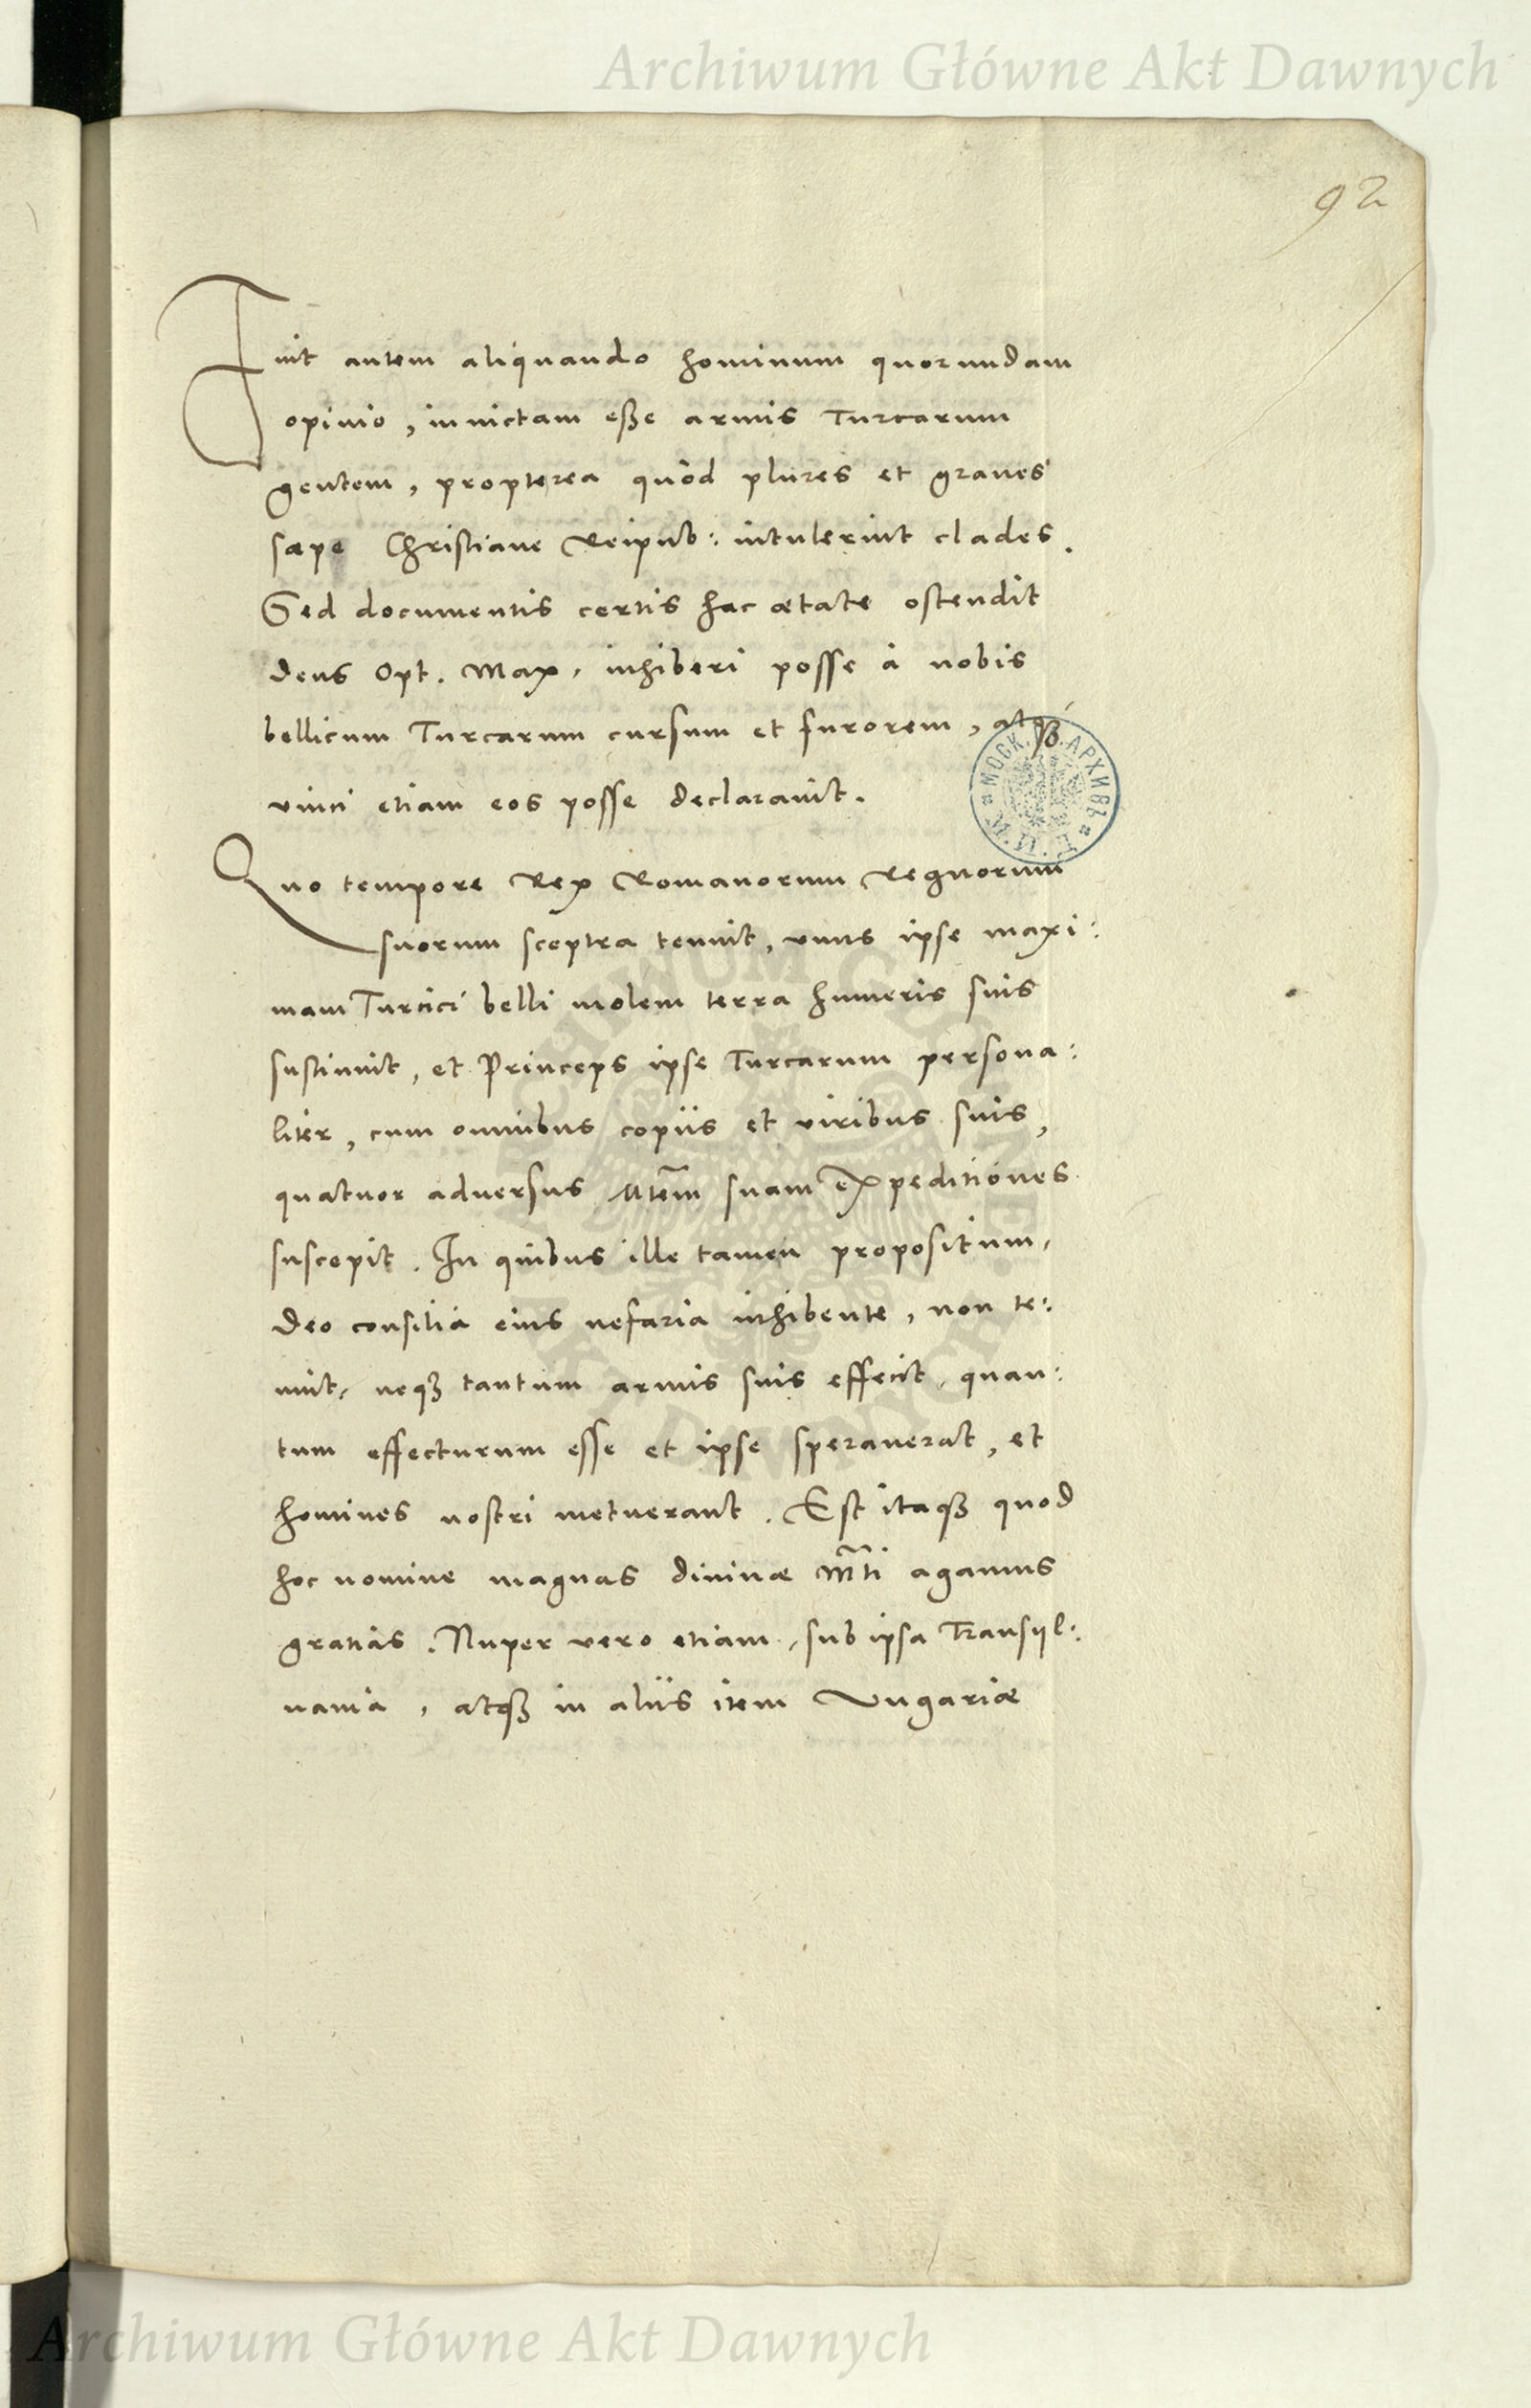 Archiwum Główne Akt Dawnych
92
Fuit autem aliquando hominum quorundam
opinio, inuictam eße armis Turcarum
gentem, propterea quòd plures et graues
sæpe Christiane Reipub: intulerint clades.
Sed documentis certis hac ætate ostendit
deus Opt. Max. inhiberi posse à nobis
bellicum Turcarum cursum et furorem, atq3
vinci etiam eos posse declarauit.
МОСК. АРХИВЪ
Quo tempore Rex Romanorum Regnorum
suorum sceptra tenuit, vnus ipse maxi:
mam Turcici belli molem terra humeris suis
sustinuit, et Princeps ipse Turcarum persona:
liter, cum omnibus copiis et viribus suis,
quatuor aduersus Mtem suam expeditiones
suscepit. In quibus ille tamen propositum,
deo consilia eius nefaria inhibente, non te:
nuit, neq3 tantum armis suis effecit, quan:
tum effecturum esse et ipse sperauerat, et
homines nostri metuerant. Est itaq3 quod
hoc nomine magnas diuinæ Mti agamus
gratias. Nuper vero etiam, sub ipsa Transyl:
uania, atq3 in aliis item Vngariæ
Archiwum Główne Akt Dawnych